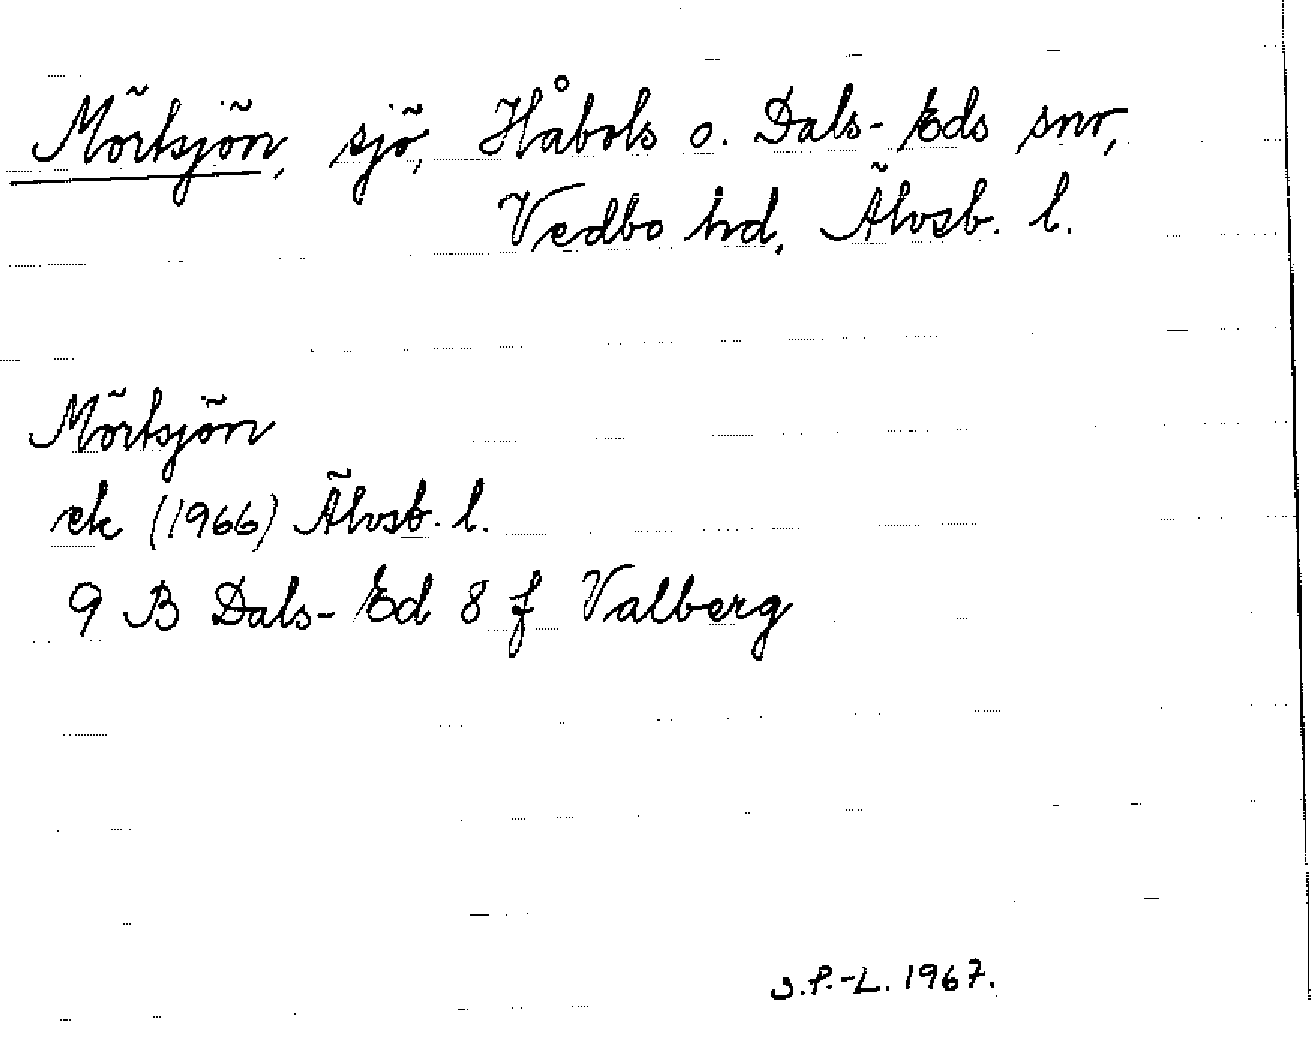 Mörtsjön, sjö, Håbols o. Dals-Eds snr,
Vedbo hd, Älvsb. l.
Mörtsjön
ek (1966) Älvsb. l.
9 B Dals-Ed 8 f Valberg
S.P.-L. 1967.